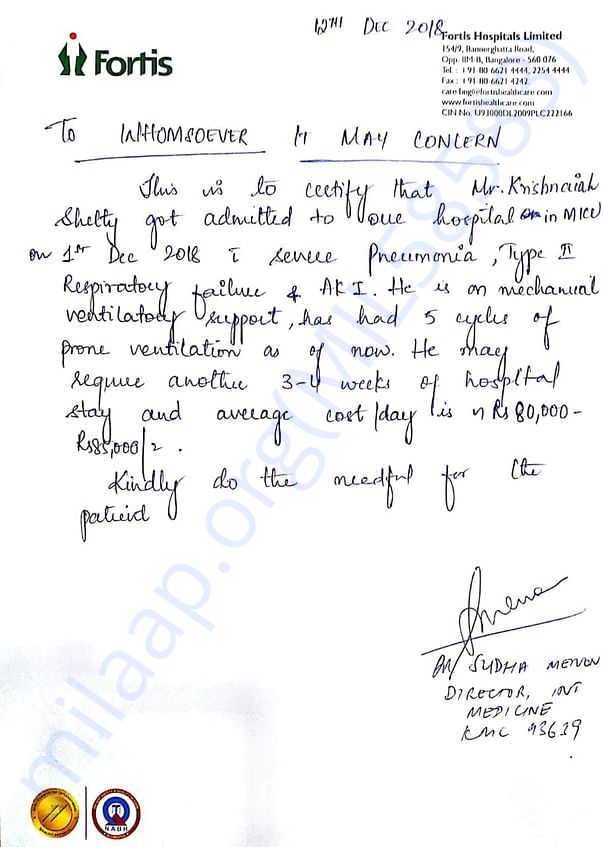 12TH DEC 2018
Fortis
Fortis Hospitals Limited
154/9, Bannerghatta Road,
Opp. IIM-B, Bangalore - 560 076
Tel : +91-80 6621 4444, 2254 4444
Fax : +91-80 6621 4242
care.bng@fortishealthcare.com
www.fortishealthcare.com
CIN No. U93000DL2009PLC222166
TO WHOMSOEVER IT MAY CONCERN
This is to certify that Mr. Krishnaiah
Shetty got admitted to our hospital in MICU
on 1st Dec 2018 c severe Pneumonia, Type II
Respiratory failure & AKI. He is on mechanical
ventilatory support, has had 5 cycles of
prone ventilation as of now. He may
require another 3-4 weeks of hospital
stay and average cost/day is Rs 80,000-
Rs 85,000/-.
Kindly do the needful for the
patient
Dr SUDHA MENON
DIRECTOR, INT
MEDICINE
KMC
NABH
milaap.org(MIL58585)